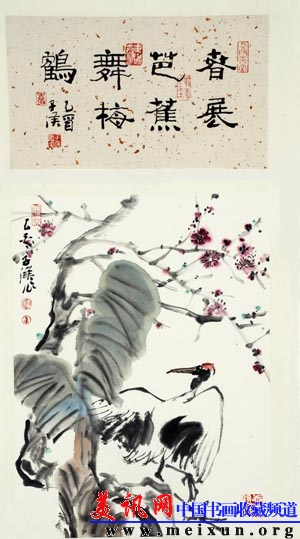 春展
芭蕉
舞梅
鶴
乙酉
美讯网
中国书画收藏频道
www.meixun.org